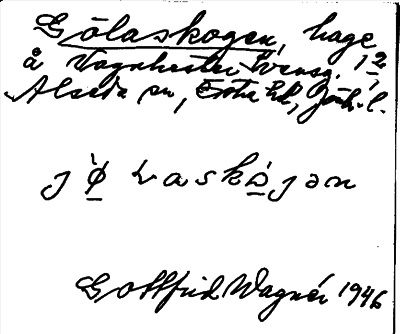 Gölaskogen, hage
å Vagnhester Svensg. 1 2
Alseda sn, Östra hd, Jönk. l.
Gottfrid Wagnér 1946